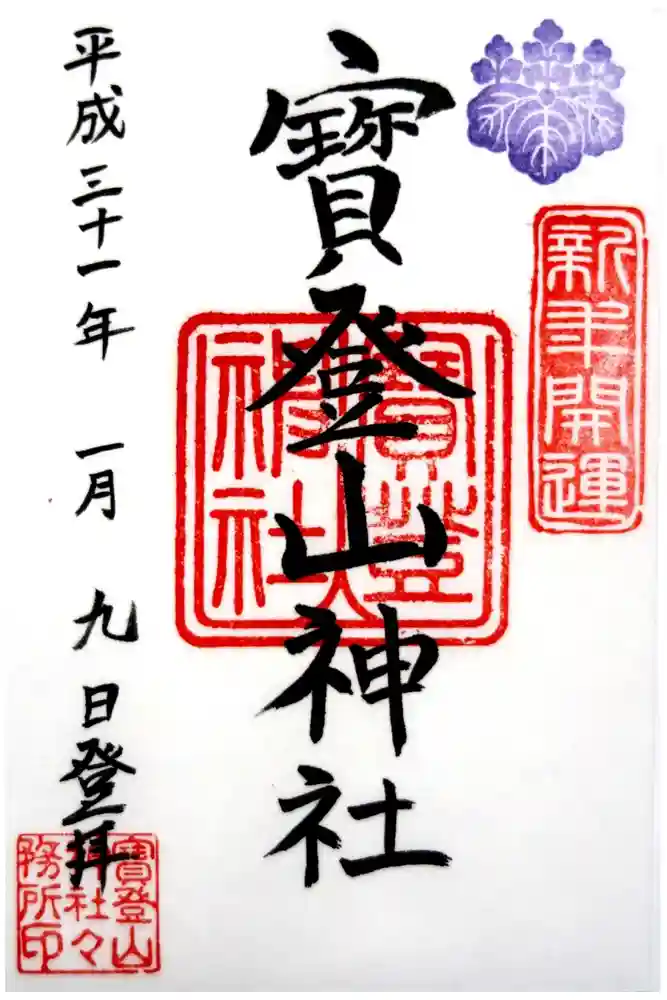 新年開運
寳登山神社
寳登山
神社
平成三十一年 一月 九日登拝
寳登山
神社々
務所印